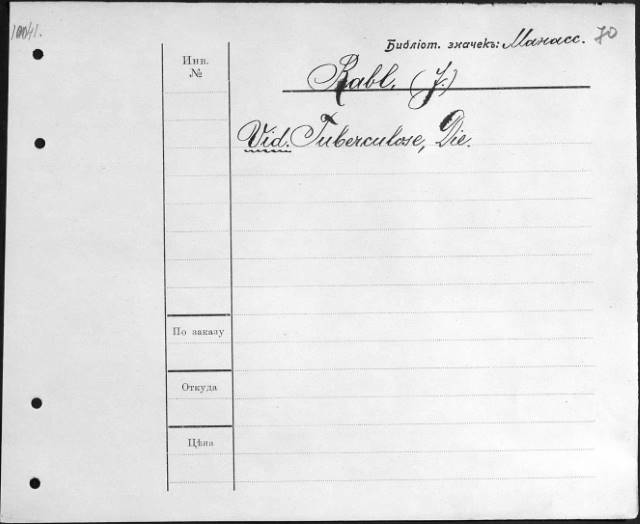 Библіот. значекъ: Манасс. 70
Инв.
№
Rabl. (J.)
Vid. Tuberculose, Die.
По заказу
Откуда
Цѣна